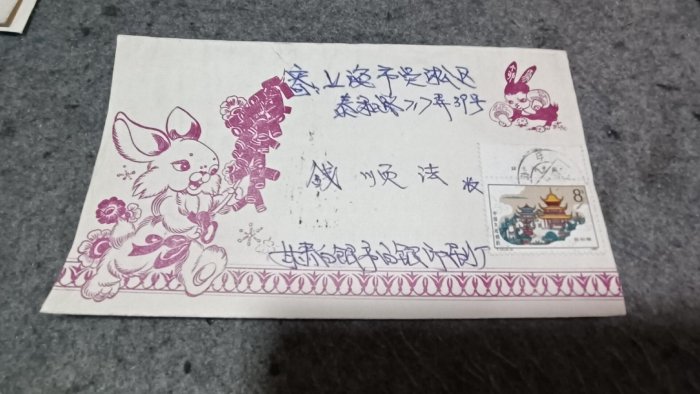 寄上海市吴淞区
泰和路217弄39号
钱顺法收
8
甘肃白银市白银印刷厂